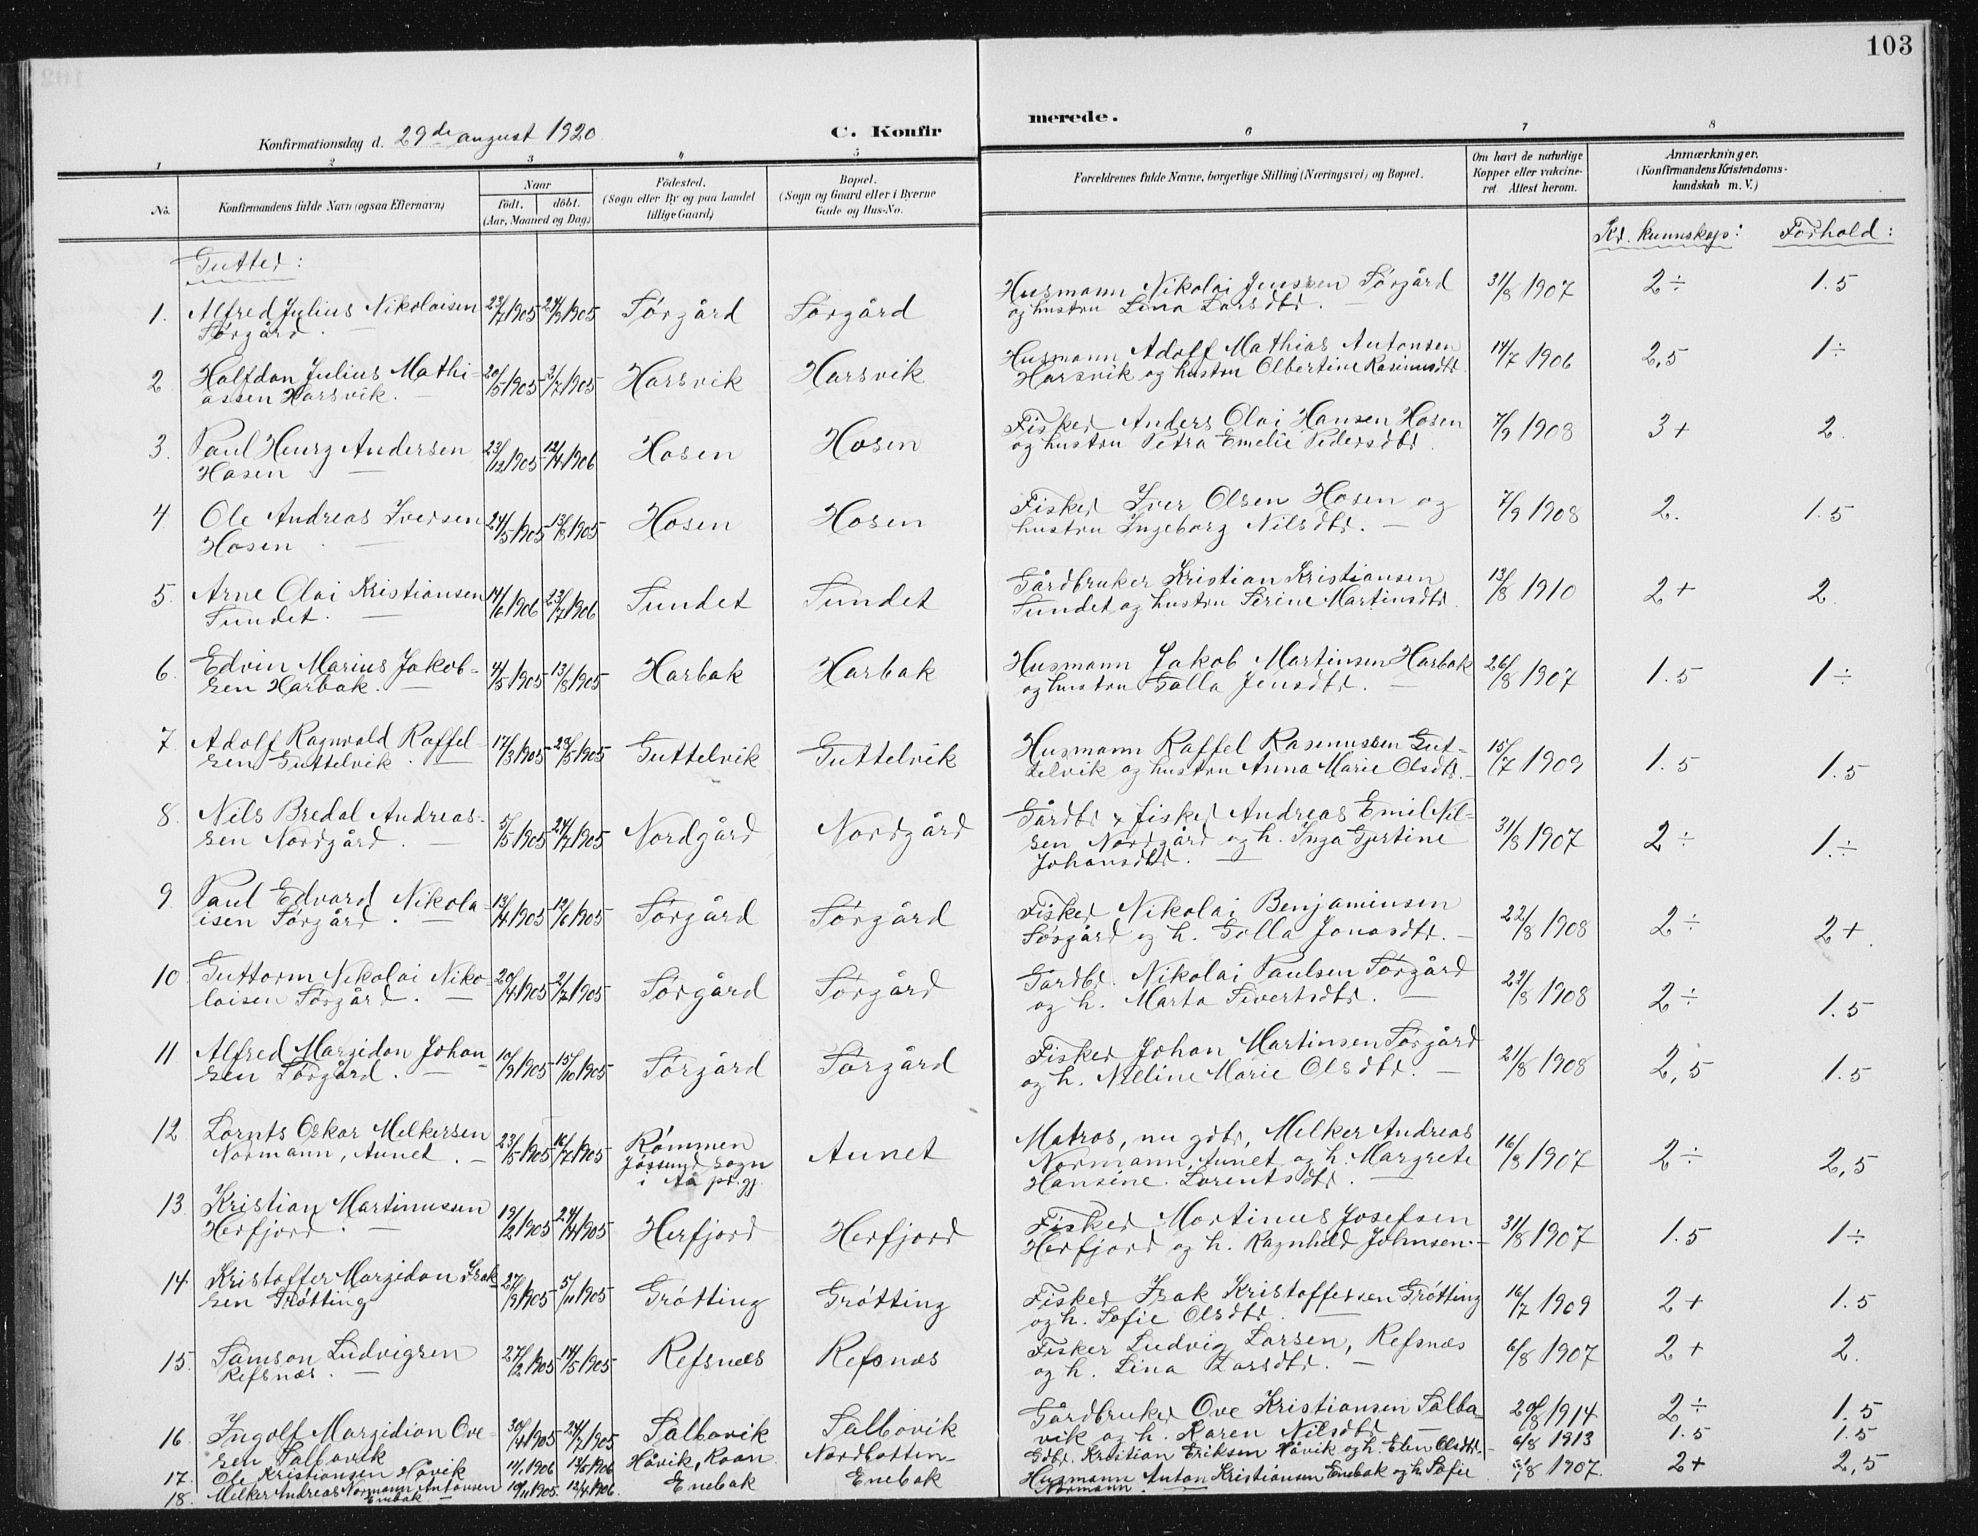 103
Konfirmationsdag d. 29de august 1920
C. Konfirmerede.
1 2 3 4 5 6 7 8
No.
Konfirmandens fulde Navn (ogsaa Efternavn)
Naar
født. døbt.
(Aar, Maaned og Dag)
Fødested.
(Sogn eller By og paa Landet
tillige Gaard)
Bopæl.
(Sogn og Gaard eller i Byerne
Gade og Hus-No.
Forældrenes fulde Navne, borgerlige Stilling (Næringsvei) og Bopæl.
Om havt de naturlige
Kopper eller vakcine-
ret. Attest herom.
Anmærkninger.
(Konfirmandens Kristendoms-
kundskab m. V.)
Kr. kunnskap: Forhold:
Gutter:
1. Alfred Julius Nikolaisen 29/7 1905 24/9 1905 Sørgård Sørgård Husmann Nikolai Jenssen Sørgård 31/8 1907 2÷ 1.5
Sørgård. og hustru Lina Larsdtr.
2 Halfdan Julius Mathi- 20/5 1905 2/7 1905 Harsvik Harsvik Husmann Adolf Mathias Antonsen 14/7 1906 2,5 1÷
assen Harsvik. Harsvik og hustru Olbertine Rasmusdtr.
3. Paul Henry Andersen 23/12 1905 12/4 1906 Hosen Hosen Fisker Anders Olai Hansen Hosen 7/9 1908 3+ 2.
Hosen og hustru Petra Emelie Pedersdtr.
4 Ole Andreas Iversen 24/5 1905 13/8 1905 Hosen Hosen Fisker Iver Olsen Hosen og 7/9 1908 2. 1.5
Hosen. hustru Ingeborg Nilsdtr.
5. Arne Olai Kristiansen 14/6 1906 23/7 1906 Sundet Sundet Gårdbruker Kristian Kristiansen 13/8 1910 2+ 2.
Sundet. Sundet og hustru Serine Martinsdtr.
6. Edvin Marius Jakob- 4/5 1905 13/8 1905 Harbak Harbak Husmann Jakob Martinsen Harbak 26/8 1907 1.5 1÷
sen Harbak. og hustru Golla Jensdtr.
7. Adolf Ragnvald Raffel- 17/3 1905 28/5 1905 Guttelvik Guttelvik Husmann Raffel Rasmussen Gut- 15/7 1909 1.5 1.5
sen Guttelvik. telvik og hustru Anna Marie Olsdtr.
8. Nils Bredal Andreas- 5/5 1905 24/7 1905 Nordgård Nordgård Gårdbr & fisker Andreas Emil Nil- 31/8 1907 2÷ 1.÷
sen Nordgård. sen Nordgård og h. Inga Gjertine
Johansdtr.
9. Paul Edvard Nikola- 13/4 1905 12/6 1905 Sørgård Sørgård Fisker Nikolai Benjaminsen 22/8 1908 2÷ 2+.
isen Sørgård. Sørgård og h. Golla Jonasdtr.
10. Guttorm Nikolai Niko- 20/4 1905 2/7 1905 Sørgård Sørgård Gardbr. Nikolai Paulsen Sørgård 22/8 1908 2÷ 1.5
laisen Sørgård. og h. Marta Sivertsdtr.
11 Alfred Margidon Johan- 10/9 1905 15/10 1905 Sørgård Sørgård Fisker Johan Martinsen Sørgård 21/8 1908 2,5 1.5
sen Sørgård. og h. Nelline Marie Olsdtr.
12. Lornts Oskar Melkersen 23/5 1905 16/7 1905 Rømmen Aunet Matros, nu gdbr, Melker Andreas 16/8 1907 2÷ 2,5
Normann, Aunet. Jøssund sogn Normann, Aunet og h. Margrete
i Aa pr.gj. Hansine Lorentsdtr.
13. Kristian Martinussen 19/2 1905 24/4 1905 Herfjord Herfjord Fisker Martinus Josefsen 31/8 1907 1.5 1÷
Herfjord. Herfjord og h. Ragnhild Johnsen.
14. Kristoffer Margidon Isak- 27/9 1905 5/11 1905 Grøtting Grøtting Fisker Isak Kristoffersen Grøtting 16/7 1909 2+ 1.5
sen Grøtting og h. Sofie Olsdtr.
15. Samson Ludvigsen 27/2 1905 14/5 1905 Refsnæs Refsnæs Fisker Ludvig Larsen, Refsnæs 6/8 1907 2+ 2.
Refsnæs. og h. Lina Larsdtr.
16. Ingolf Margidion Ove- 30/4 1905 24/7 1905 Salbovik Salbovik Gårdbruker Ove Kristiansen Salbo- 20/8 1914 2÷ 1.5
sen Salbovik vik og h. Karen Nilsdtr
17. Ole Kristiansen Håvik Håvik, Roan Nordbotten Gdbr. Kristian Eriksen Håvik og h. Elen Olsdtr. 6/8 1913 1.5 1.5
18. Melker Andreas Normann Antonsen 10/11 1905. 12/4 1906. Enebak Enebak Husmann Anton Kristiansen Enebak og h. Sofie 1907. 2+ 2,5
Enebak Normann.